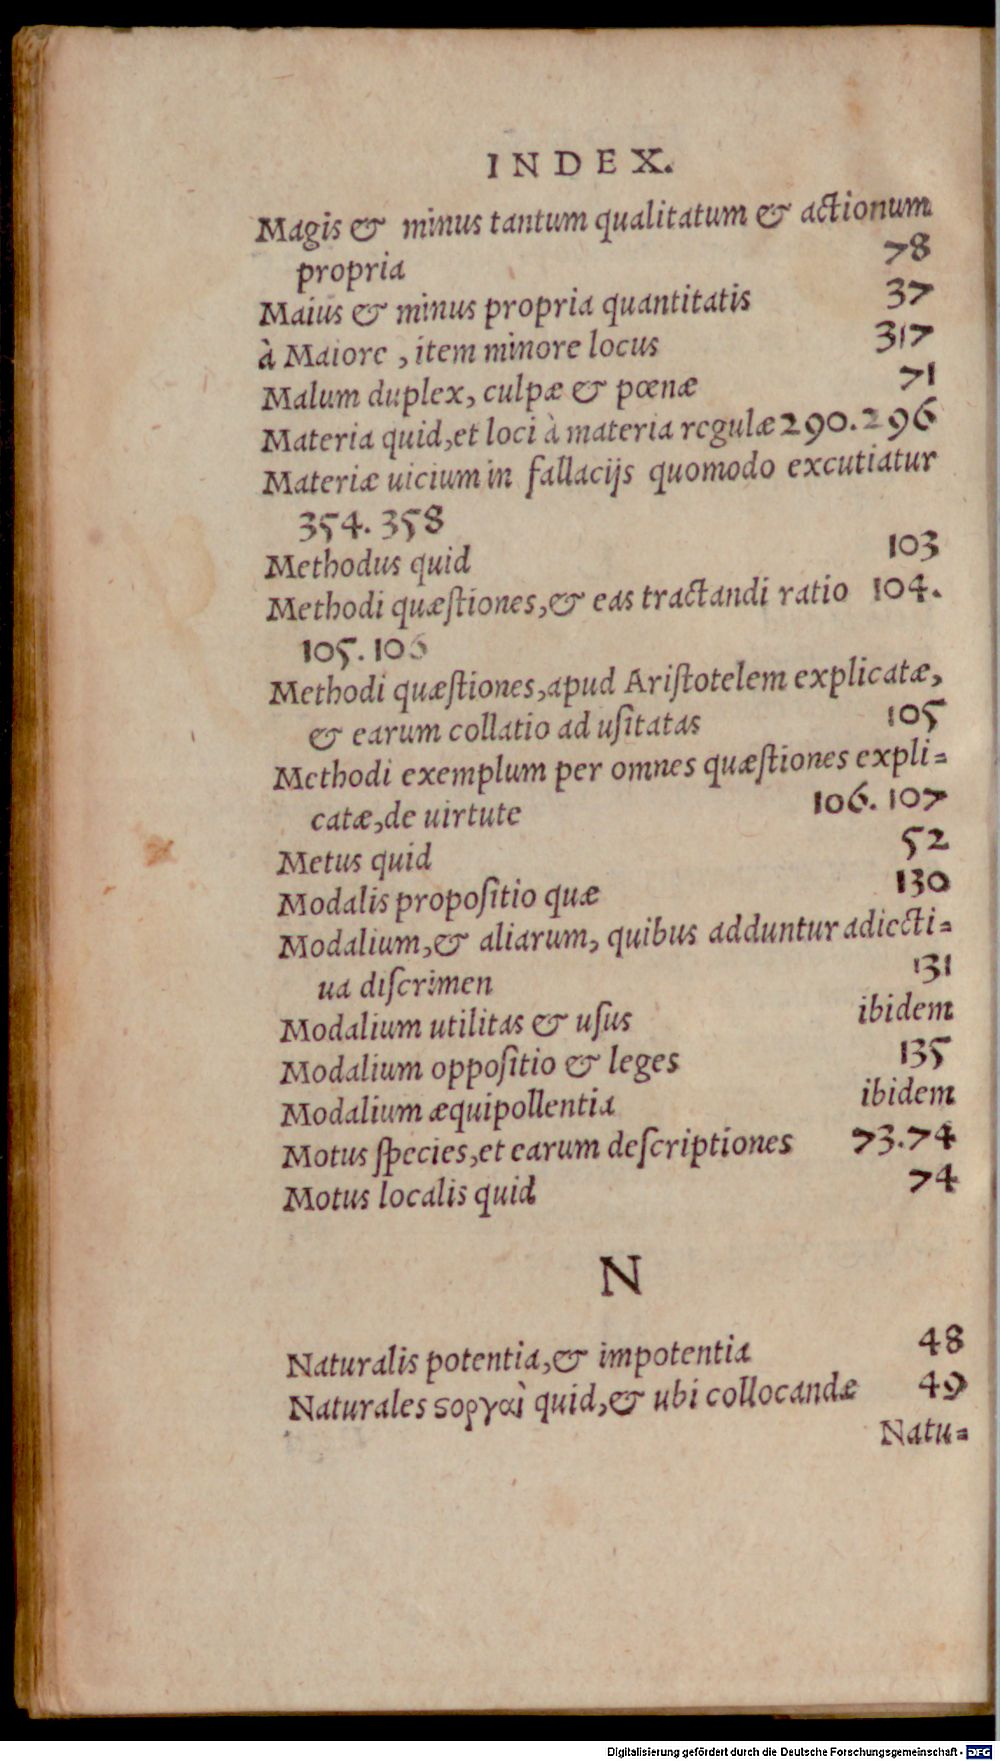 INDEX.
Magis & minus tantum qualitatum & actionum
propria 78
Maius & minus propria quantitatis 37
à Maiore , item minore locus 317
Malum duplex, culpæ & pœnæ 71
Materia quid,et loci à materia regulæ 290.296
Materiæ uicium in fallacijs quomodo excutiatur
354. 358
Methodus quid 103
Methodi quæſtiones,& eas tractandi ratio 104.
105. 106
Methodi quæſtiones,apud Ariſtotelem explicatæ,
& earum collatio ad uſitatas 105
Methodi exemplum per omnes quæſtiones expli=
catæ,de uirtute 106. 107
Metus quid 52
Modalis propoſitio quæ 130
Modalium,& aliarum, quibus adduntur adiecti=
ua diſcrimen 131
Modalium utilitas & uſus ibidem
Modalium oppoſitio & leges 135
Modalium æquipollentia ibidem
Motus ſpecies,et earum deſcriptiones 73.74
Motus localis quid 74
N
Naturalis potentia,& impotentia 48
Naturales ςοργαὶ quid,& ubi collocandæ 49
Natu=
Digitalisierung gefördert durch die Deutsche Forschungsgemeinschaft - DFG